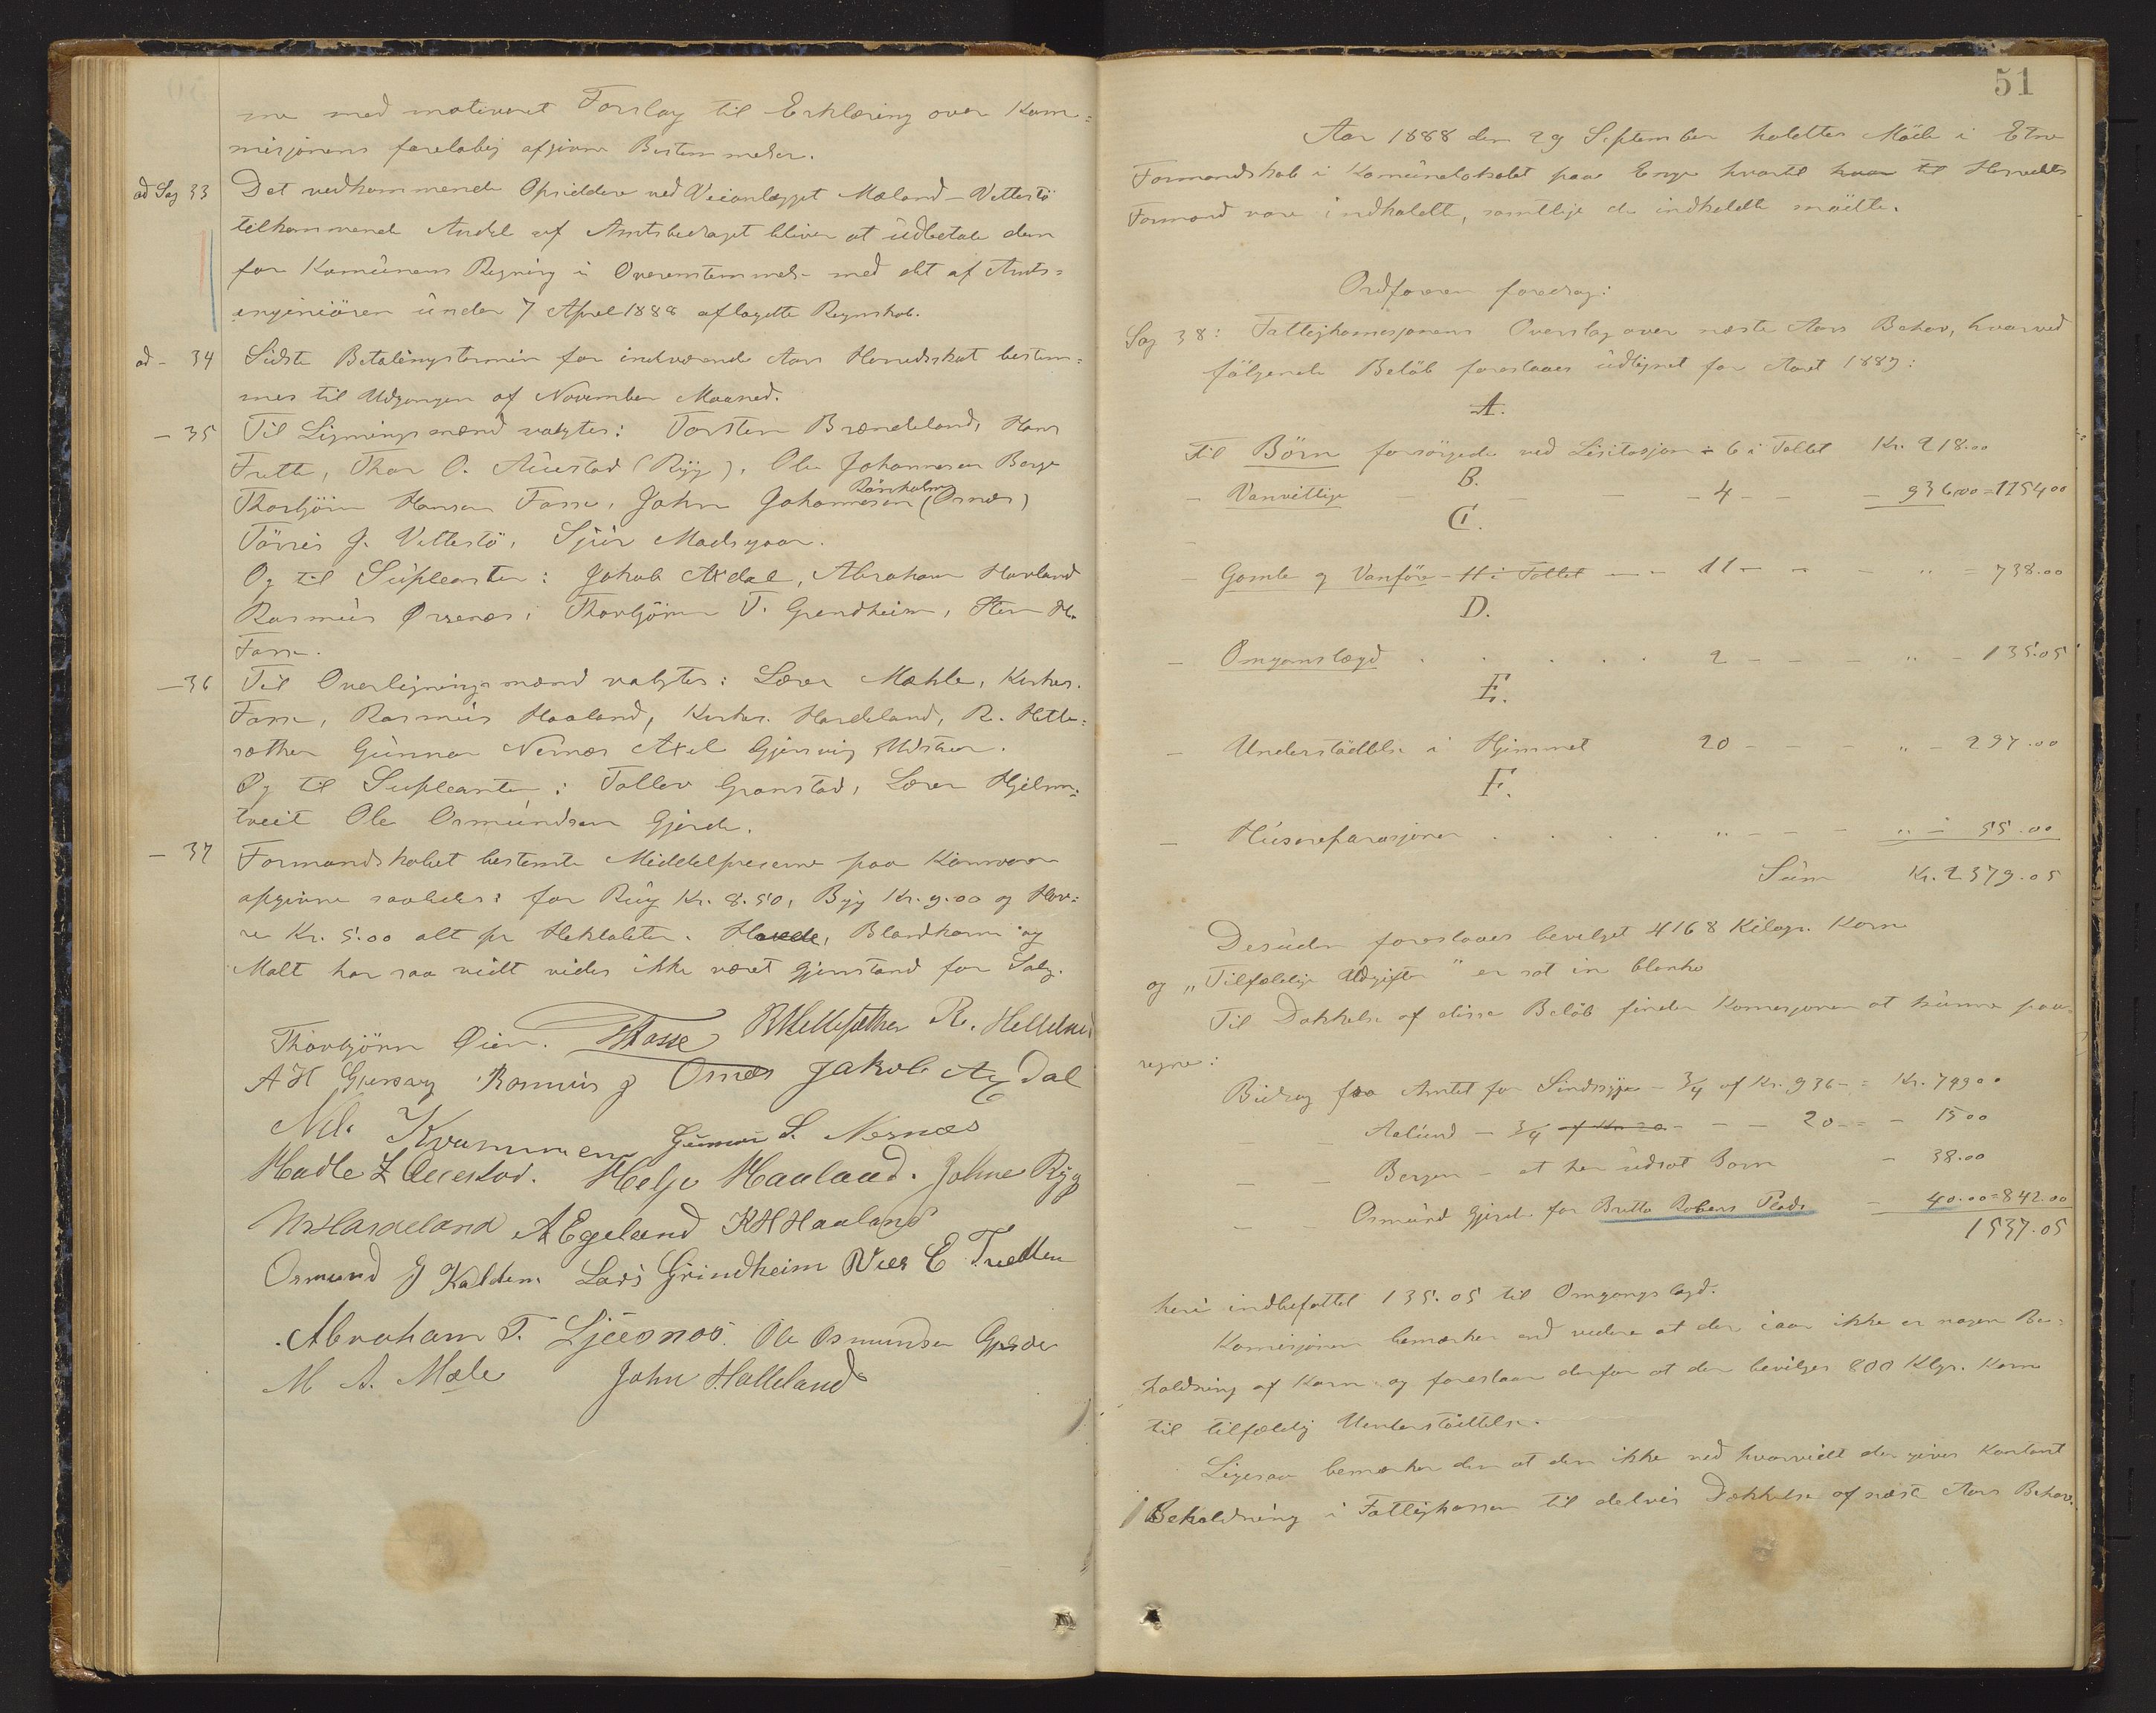 me med motiveret Forslag til Erklæring over Kom=
misjonens foreløbig afgivne Bestemmelser.
ad Sag 33 Det vedkommende Opsiddere ved Veianlægget Mæland - Vettestö
tilkommende Andel af Amtsbedraget bliver at udbetale dem
for Komunens Regning i Overenstemmelse med det af Amts=
ingeniören under 7 April 1888 aflagte Regnskab.
ad - 34 Sidste Betalingstermin for indværende Aars Herredsskat bestem=
mes til Udgangen af November Maaned.
- 35 Til Ligningsmænd valgtes: Torsten Brændeland, Hans
Frette, Thor O. Austad (Rygg), Ole Johannesen Berge
Thorbjörn Hansen Fosse, John Johannesen Rönholm (Osnæs)
Törres J. Vettestö, Sjur Madsgaar.
Og til Supleanter: Jakob Axdal, Abraham Havland
Rasmus Ørsenæs, Thorbjörn T. Grendheim, Sten H.
Fosse.
- 36 Til Overligningsmænd valgtes: Lærer Mæhle, Kirkes.
Fosse, Rasmus Haaland, Kirkes. Hardeland, R. Helle=
sæther Gunnar Nernæs Axel Gjersvig
Og til Supleanter: Tollev Granstad, Lærer Hjelm=
tveit Ole Osmundsen Gjerde.
- 37 Formandskabet bestemte Middelpreserne paa Kornvarer
afgivne saaledes: for Rug Kr. 8.50, Byg Kr. 9.00 og Hav=
re Kr. 5.00 alt pr Hektoliter. Hvede, Blandkorn og
Malt har saa vidt vides ikke været Gjenstand for Salg.
Thorbjörn Øien. Fosse BHellesæther R. Helleland
A H Gjersvig Rasmus J Osnes Jakob Axdal
Nils Kvammen Gunnar S. Nernæs
Helge Haaland. Johne Rygg
Hardeland A Egeland RHHaaland
Osmund J Kaldem Lars Grindheim Nils E Tvedten
Abraham T. Ljusnos. Ole Osmundsen Gjerde
M A. Mæle John Halleland
51
Aar 1888 den 29 September holdttes Möde i Etne
Formandskab i Komunelokalet paa Enge hvortil hvar til Herredets
Formænd vare indkaldte, samtlige de indkaldte mödte.
Ordföreren foredrog:
Sag 38: Fattigkomesjonens Overslag over næste Aars Behov, hvorved
fölgende Beløb foreslaaes udlignet for Aaret 1889:
A.
Til Börn forsörgede ved Lisitasjon - 6 i Tallet Kr. 218.00
B.
- Vanvittige - - - 4 - - - 936.00 = 1154.00
C.
- Gamle og Vanföre - 11 i Tallet - - 11 - - - " = 738.00
D.
- Omgangslægd . . . . . 2 - - - " - 135.05
E.
- Understödtelse i Hjemmet 20 - - " - 297.00
F.
- Husereparasjoner . . . . " - - - " - 55.00
Sum Kr. 2379.05
Desuden foreslaaes bevilget 4168 Kilogr. Korn
og „Tilfældige Udgifter" er sat in blanko
Til Dækkelse af disse Beløb finder Komesjonen at kunne paa-
regne:
Bidrag fra Amtet for Sindssyge - 3/4 af Kr. 936 - = Kr. 749 00
- - Aalund - 3/4 af Kr 20 - - - 20 - - - 15 00
- - Bergen - et her udsat Barn - 38.00
- - Osmund Gjerde for Britta Robers Plads - 40.00 = 842.00
1537.05
heri indbefattet 135.05 til Omgangslægd.
Komisjonen bemærker end videre at der iaar ikke er nogen Be=
holdning af Korn og foreslaar derfor at der bevilges 800 Klgr. Korn
til tilfældig Understöttelse.
Ligesaa bemærker den at den ikke ved hvorvidt der gives Kontant
Beholdning i Fattigkassen til delvis Dækkelse af næste Aars Behov.